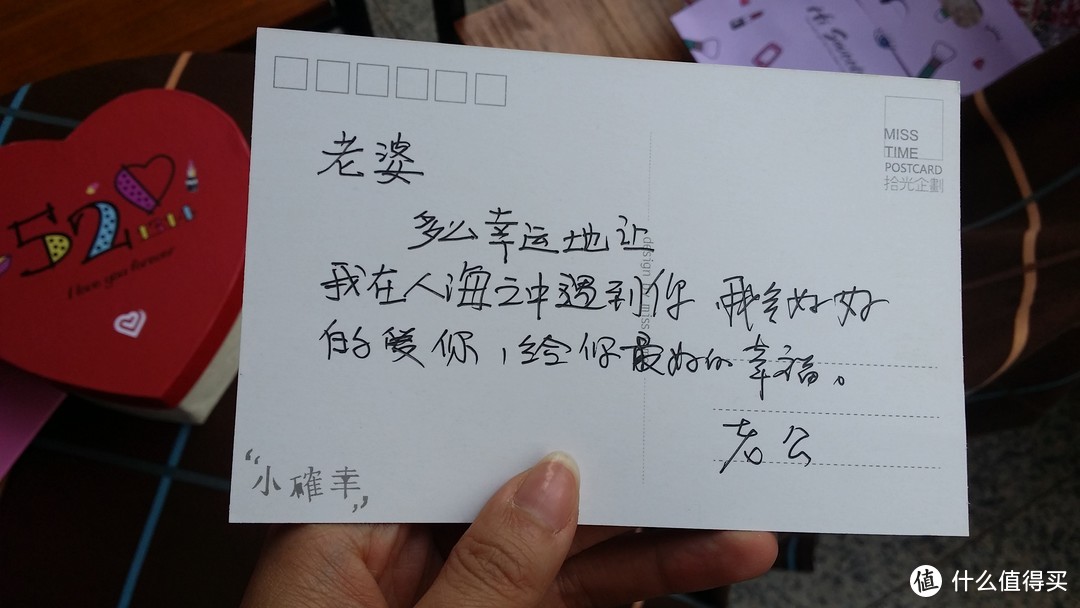 老婆
多么幸运地让
我在人海之中遇到你 我会好好
的爱你，给你最好的幸福。
老公
"小確幸"
MISS
TIME
POSTCARD
拾光企劃
design
miss
520
I love you forever
什么值得买